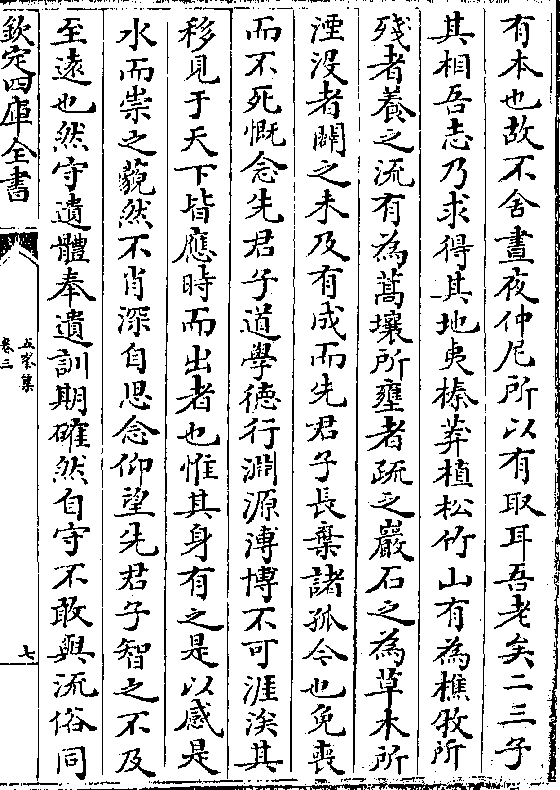 有本也故不舍晝夜仲尼所以有取耳吾老矣二三子
其相吾志乃求得其地夷榛莽植松竹山有為樵牧所
殘者養之流有為蒿壤所壅者疏之巖石之為草木所
湮没者闢之未及有成而先君子長棄諸孤今也免喪
而不死慨念先君子道學德行淵源溥博不可涯涘其
移見于天下皆應時而出者也惟其身有之是以感是
水而崇之藐然不肖深自思念仰望先君子智之不及
至遠也然守遺體奉遺訓期確然自守不敢與流俗同
欽定四庫全書
五峯集
卷三
七